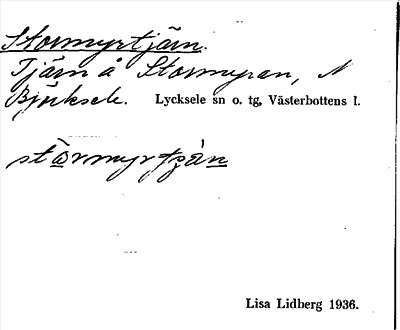 Stormyrtjärn.
Tjärn å Stormyran, N
Bjurksele. Lycksele sn o. tg, Västerbottens l.
Lisa Lidberg 1936.